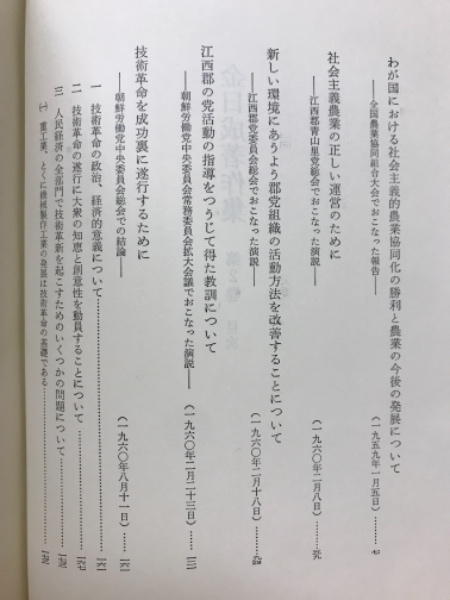 わが国における社会主義的農業協同化の勝利と農業の今後の発展について
――全国農業協同組合大会でおこなった報告――
（一九五九年一月五日）……七
社会主義農業の正しい運営のために
――江西郡青山里党総会でおこなった演説――
（一九六〇年二月八日）……五九
新しい環境にあうよう郡党組織の活動方法を改善することについて
――江西郡党委員会総会でおこなった演説――
（一九六〇年二月十八日）……九四
江西郡の党活動の指導をつうじて得た教訓について
――朝鮮労働党中央委員会常務委員会拡大会議でおこなった演説――
（一九六〇年二月二十三日）……一二一
技術革命を成功裏に遂行するために
――朝鮮労働党中央委員会総会での結論――
（一九六〇年八月十一日）……一六一
一 技術革命の政治、経済的意義について……一六一
二 技術革命の遂行に大衆の知恵と創意性を動員することについて……一六七
三 人民経済の全部門で技術革新を起こすためのいくつかの問題について……
㈠ 重工業、とくに機械製作工業の発展は技術革命の基礎である……
金日成著作集
第2巻 目次